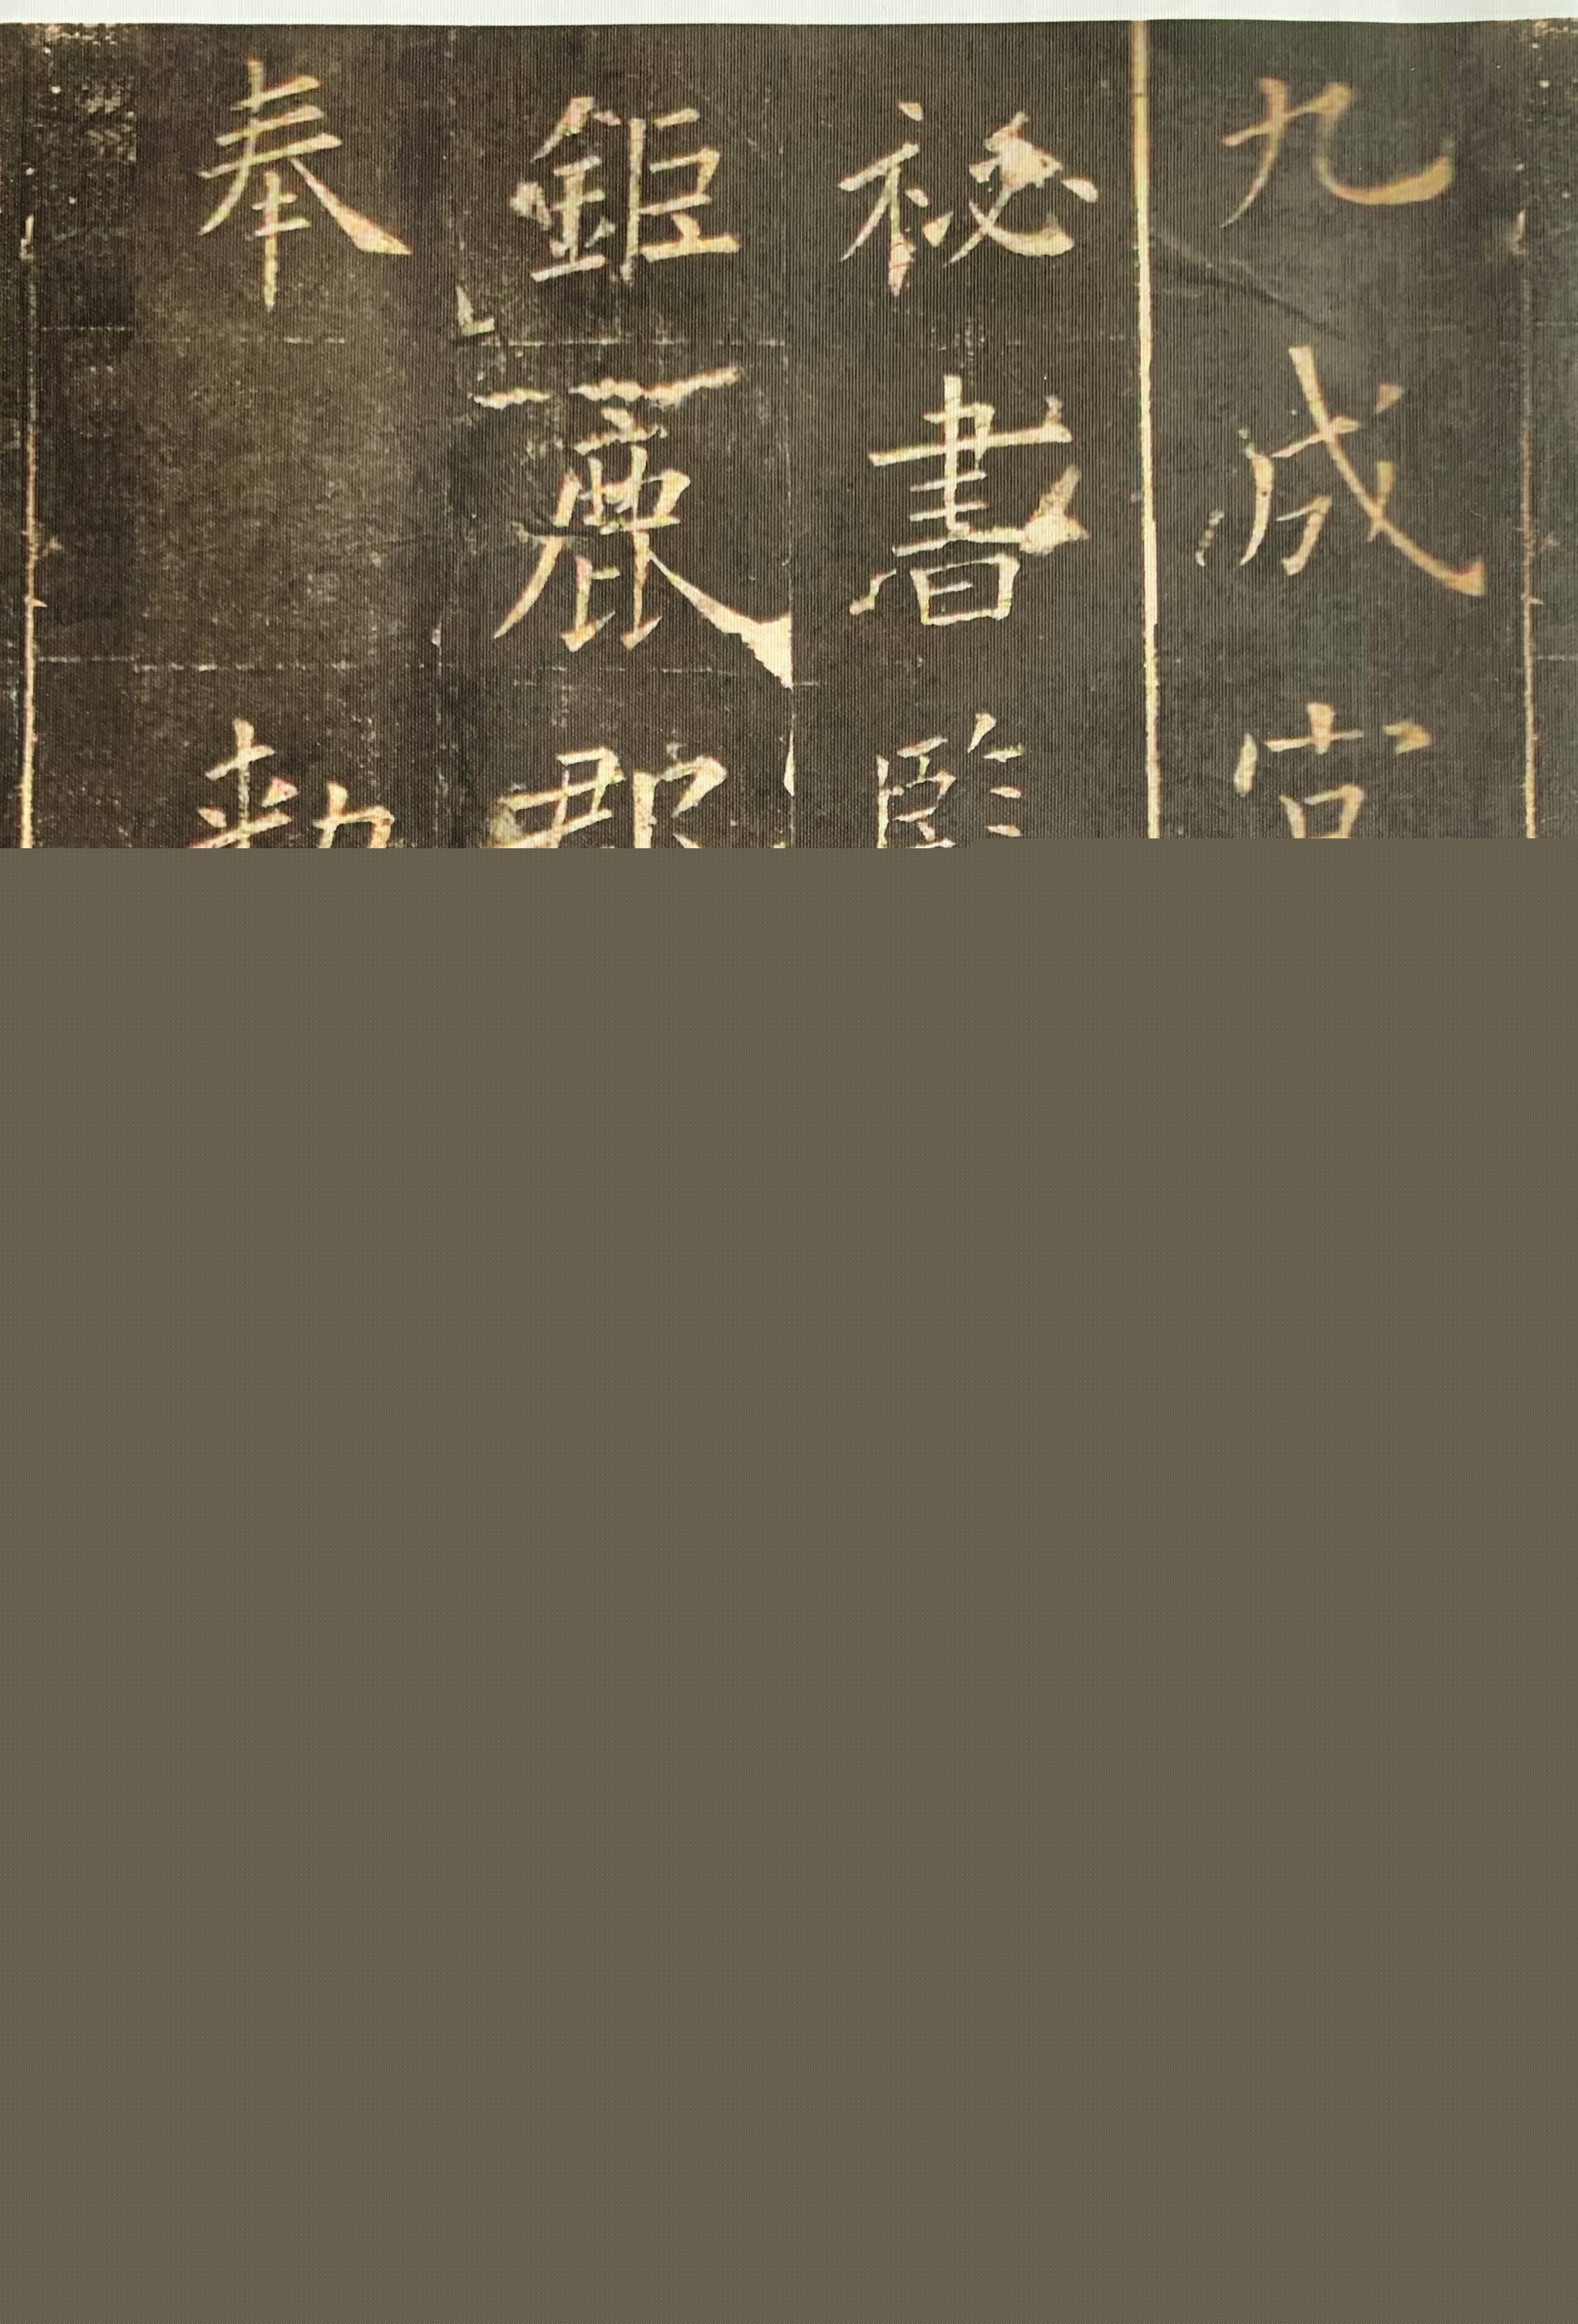 九成宮
祕書監
鉅鹿郡
奉勑